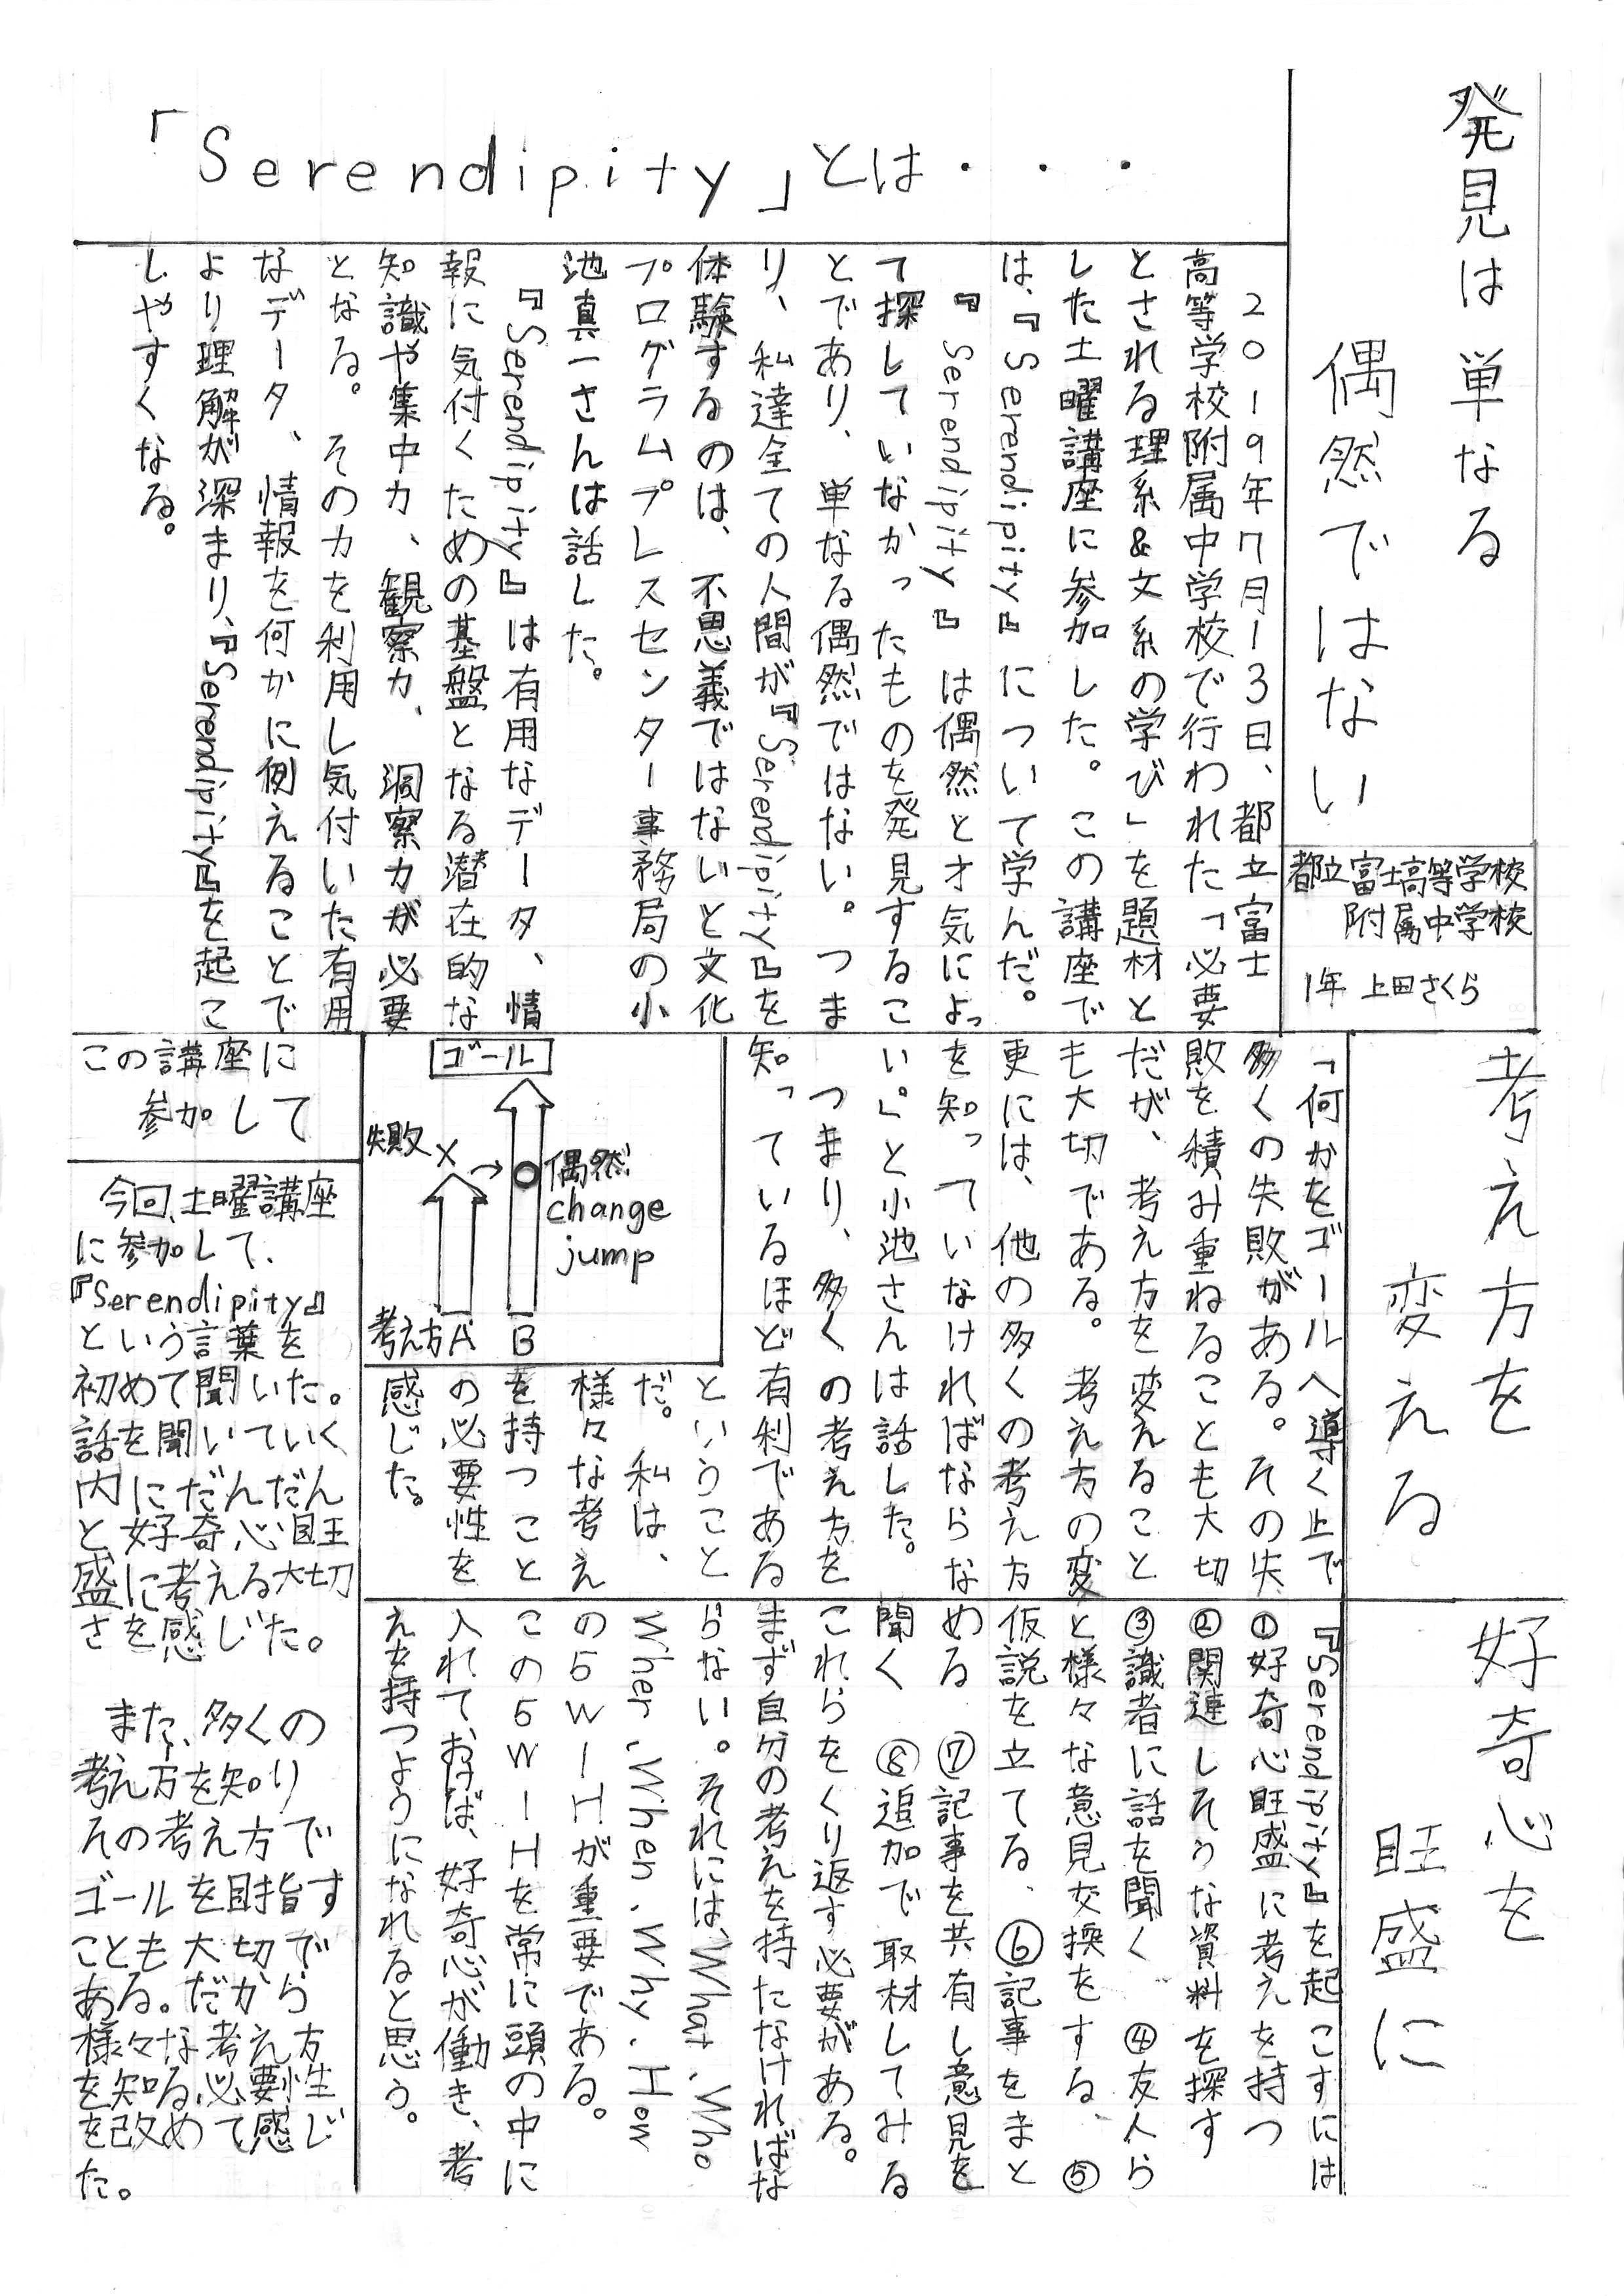 発見は単なる
偶然ではない
都立富士高等学校
附属中学校
1年 上田さくら
「Serendipity」とは・・・
２０１９年７月１３日、都立富士
高等学校附属中学校で行われた「必要
とされる理系&文系の学び」を題材と
した土曜講座に参加した。この講座で
は、『Serendipity』について学んだ。
『Serendipity』は偶然と才気によっ
て探していなかったものを発見するこ
とであり、単なる偶然ではない。つま
り、私達全ての人間が『Serendipity』を
体験するのは、不思議ではないと文化
プログラムプレスセンター事務局の小
池真一さんは話した。
『Serendipity』は有用なデータ、情
報に気付くための基盤となる潜在的な
知識や集中力、観察力、洞察力が必要
となる。その力を利用し気付いた有用
なデータ、情報を何かに例えることで
より理解が深まり、『Serendipity』を起こ
しやすくなる。
考え方を
変える
「何かをゴールへ導く上で
多くの失敗がある。その失
敗を積み重ねることも大切
だが、考え方を変えること
も大切である。考え方の変
更には、他の多くの考え方
を知っていなければならな
い。」と小池さんは話した。
つまり、多くの考え方を
知っているほど有利である
ということ
だ。私は、
様々な考え
を持つこと
の必要性を
感じた。
ゴール
失敗 × →
偶然
change
jump
考え方A B
好奇心を
旺盛に
『Serendipity』を起こすには
①好奇心旺盛に考えを持つ
②関連しそうな資料を探す
③識者に話を聞く ④友人ら
と様々な意見交換をする、⑤
仮説を立てる、⑥記事をまと
める ⑦記事を共有し意見を
聞く ⑧追加で取材してみる
これらをくり返す必要がある。
まず自分の考えを持たなければな
らない。それには、What.Who
Wher.When.Why.How
の５Ｗ１Ｈが重要である。
この５Ｗ１Ｈを常に頭の中に
入れておけば、好奇心が働き、考
えを持つようになれると思う。
この講座に
参加して
今回、土曜講座
に参加して、
『Serendipity』
という言葉を
初めて聞いた。
話を聞いていく
内にだんだん
と好奇心旺
盛に考える大切
さを感じた。
また、多くの
考え方を知り
その考え方で
ゴールを目指す
ことも大切で
ある。だから
様々な考え方
を知る必要性
を改めて感じ
た。